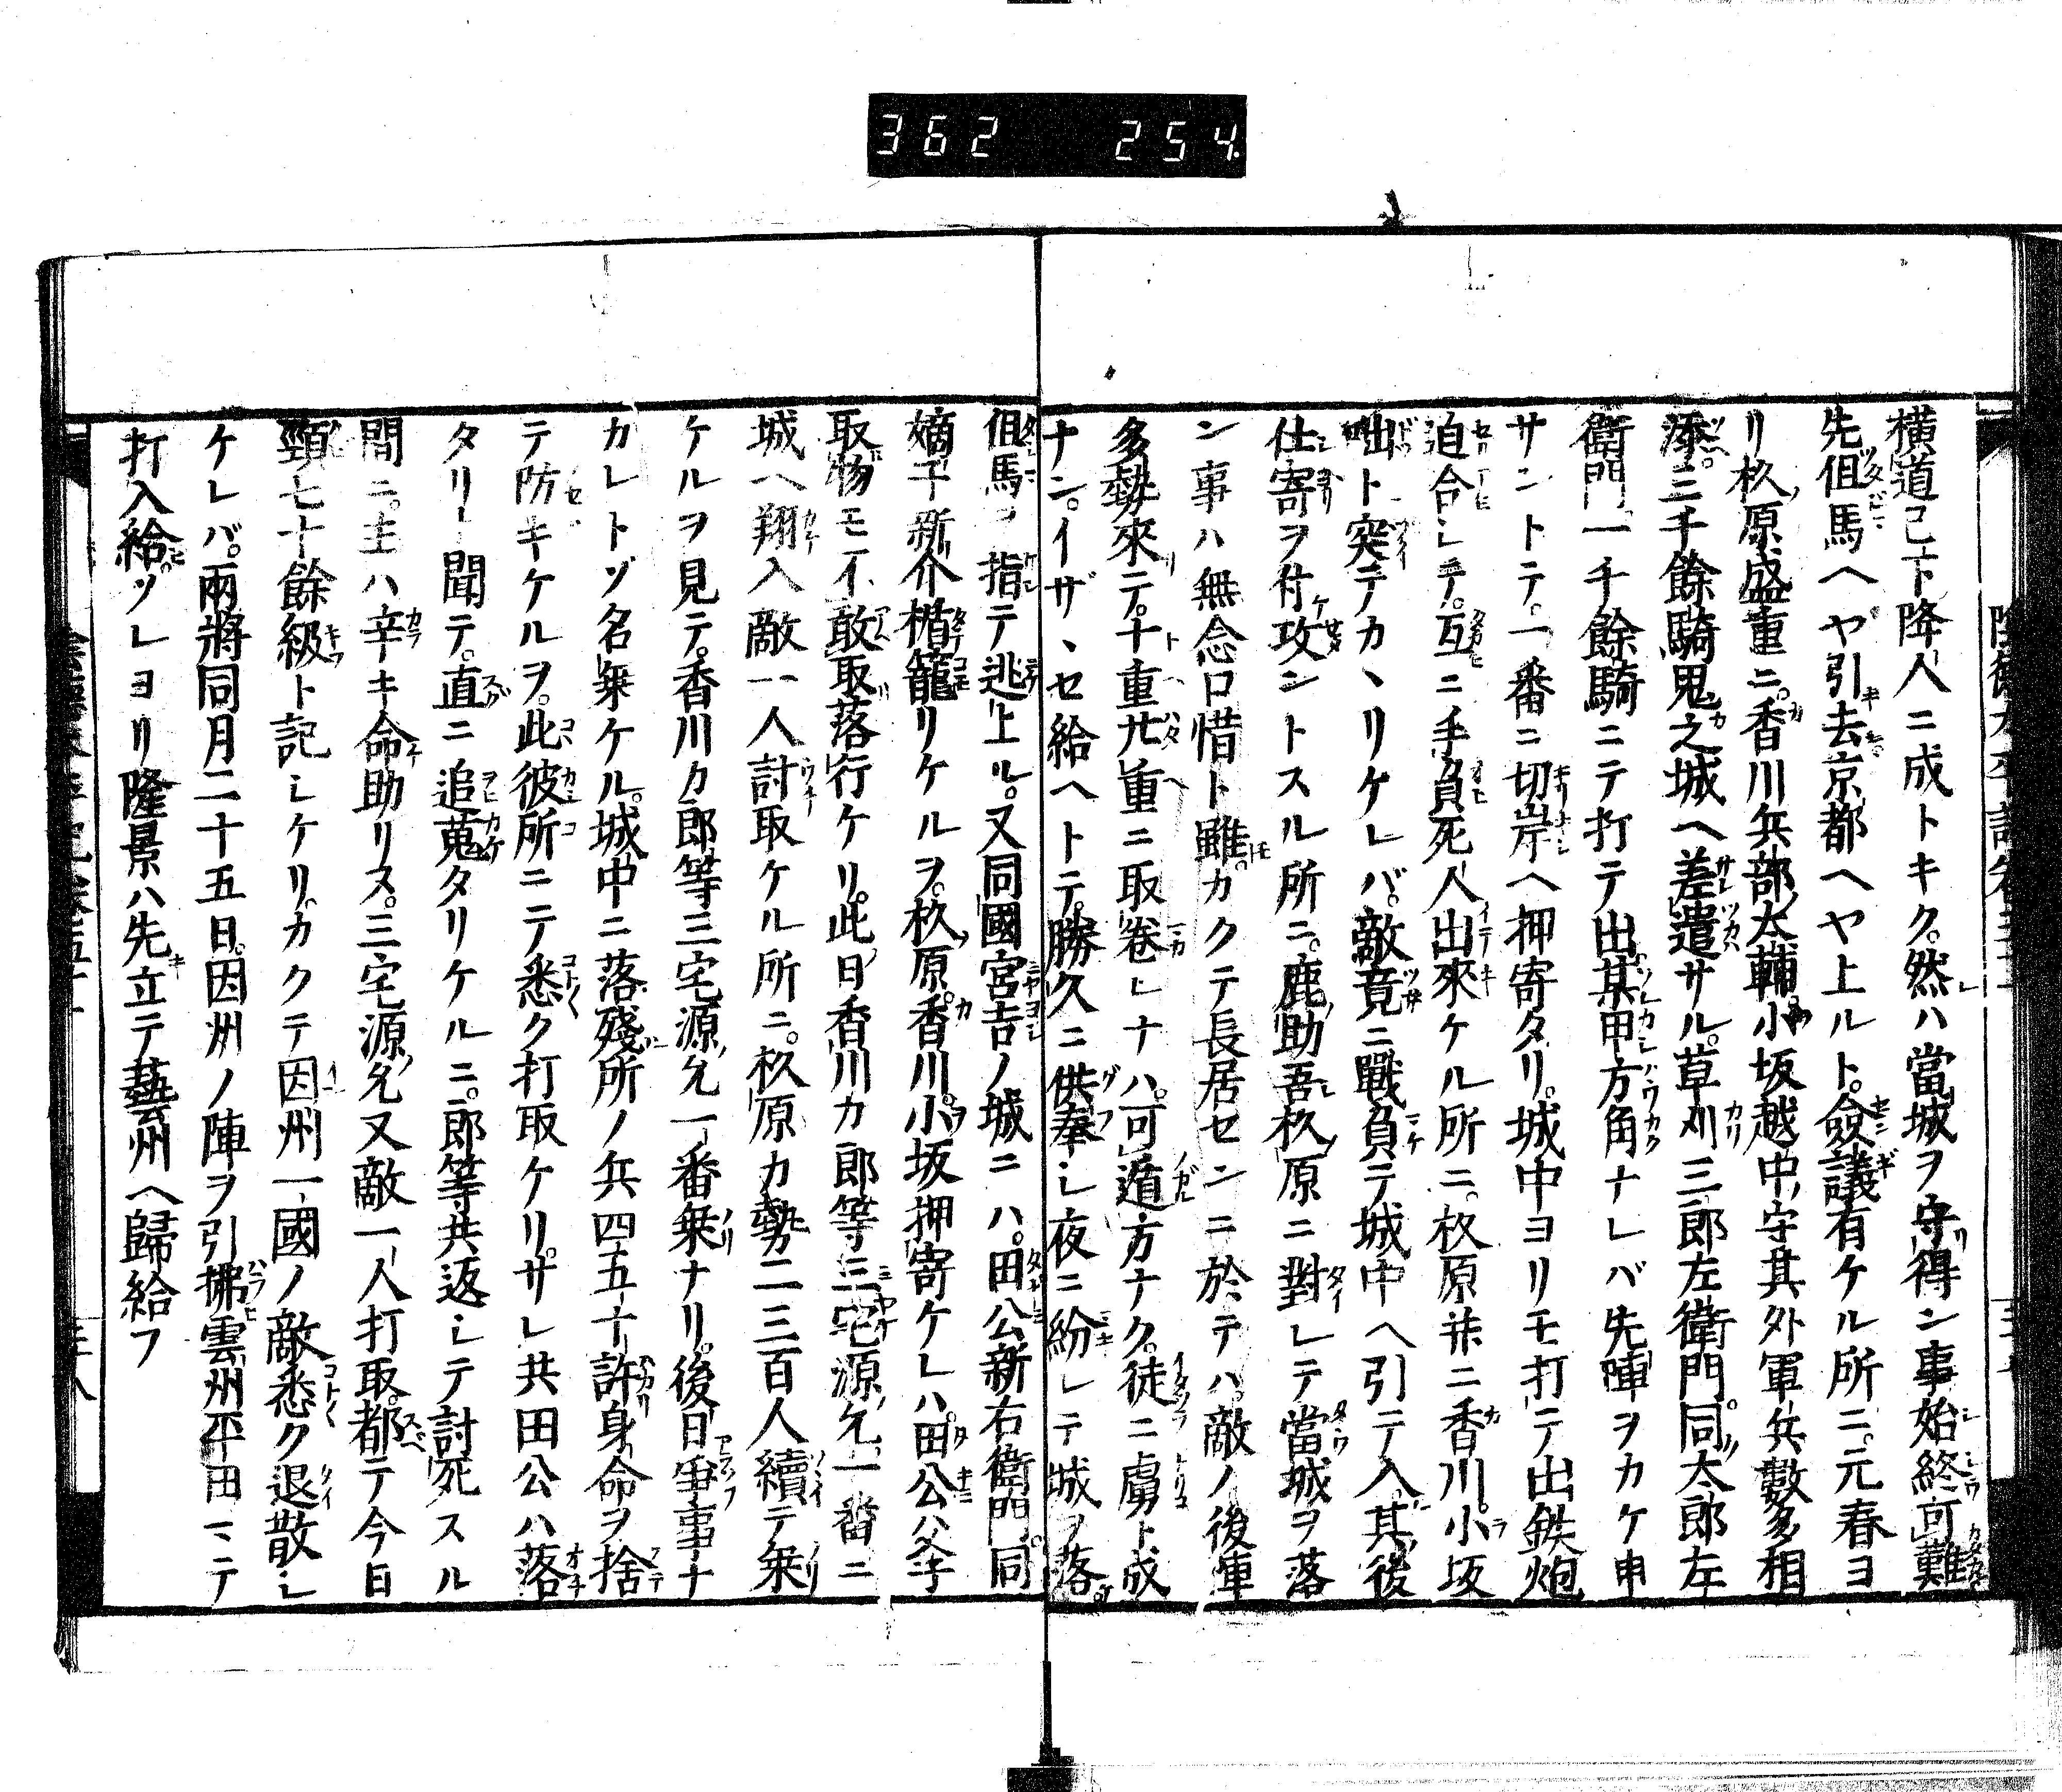 362 254
横道已下降人ニ成トキク。然ハ當城ヲ守得ン事始終可難
先伹馬ヘヤ引去京都ヘヤ上ルト。僉議有ケル所ニ。元春ヨ
リ杦原盛重ニ。香川兵部太輔小坂越中守其外軍兵數多相
添。二千餘騎鬼之城ヘ差遣サル。草刈三郎左衛門。同太郎左
衛門一千餘騎ニテ打テ出。某甲方角ナレバ先陣ヲカケ申
サントテ。一番ニ切岸ヘ押寄タリ。城中ヨリモ打テ出鉄炮
迫合シテ。互ニ手負死人出來ケル所ニ。杦原并ニ香川。小坂
咄ト突テカヽリケレバ。敵竟ニ戰負テ城中ヘ引テ入。其後
仕寄ヲ付攻ントスル所ニ。鹿助吾杦原ニ對シテ當城ヲ落
ン事ハ無念口惜ト雖。カクテ長居センニ於テハ。敵ノ後軍
多勢來テ。十重廿重ニ取卷レナハ。可遁方ナク。徒ニ虜ト成
ナン。イザヽセ給ヘトテ。勝久ニ供奉シ夜ニ紛レテ城ヲ落
伹馬ヲ指テ逃上ル。又同國宮吉ノ城ニハ。田公新右衛門。同
嫡子新介楯籠リケルヲ。杦原。香川。小坂押寄ケレハ。田公父子
取物モ不敢取落行ケリ。此日香川カ郎等三宅源允一番ニ
城ヘ翔入敵一人討取ケル所ニ。杦原カ勢二三百人續テ乗
ケルヲ見テ。香川カ郎等三宅源允一番乗ナリ。後日爭事ナ
カレトゾ名乗ケル。城中ニ落殘所ノ兵四五十許身命ヲ捨
テ防キケルヲ。此彼所ニテ悉ク打取ケリ。サレ共田公ハ落
タリト聞テ。直ニ追蒐タリケルニ。郎等共返シテ討死スル
間ニ。主ハ辛キ命助リヌ。三宅源允又敵一人打取。都テ今日
頸七十餘級ト記シケリ。カクテ因州一國ノ敵悉ク退散シ
ケレバ。兩將同月二十五日。因州ノ陣ヲ引拂雲州平田ニテ
打入給ツレヨリ隆景ハ先立テ藝州ヘ歸給フ